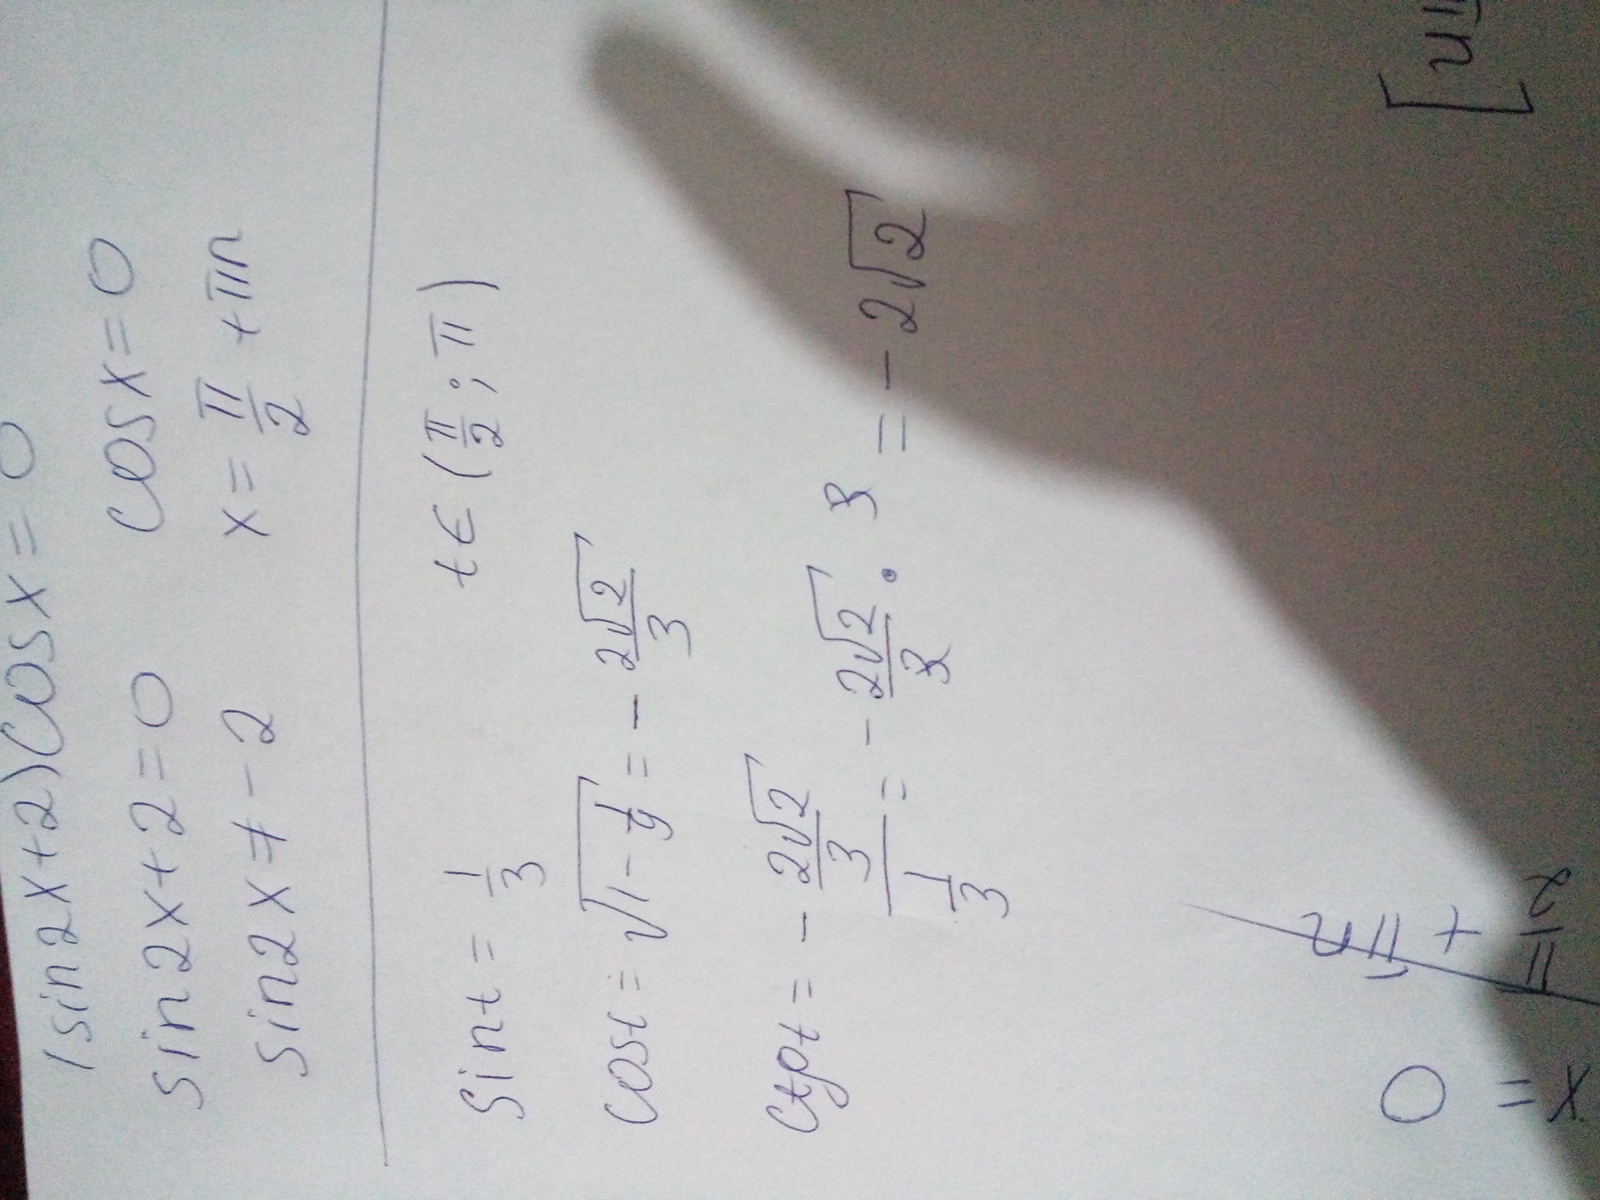 (sin2x+2)cosx=0
sin2x+2=0 cosx=0
sin2x≠-2 x=π/2+πn
sint=1/3 t∈(π/2;π)
cost=√(1-1/9)=-2√2/3
ctgt=-(2√2/3)/(1/3)=-2√2/3·3=-2√2
x=π/2+πn
0